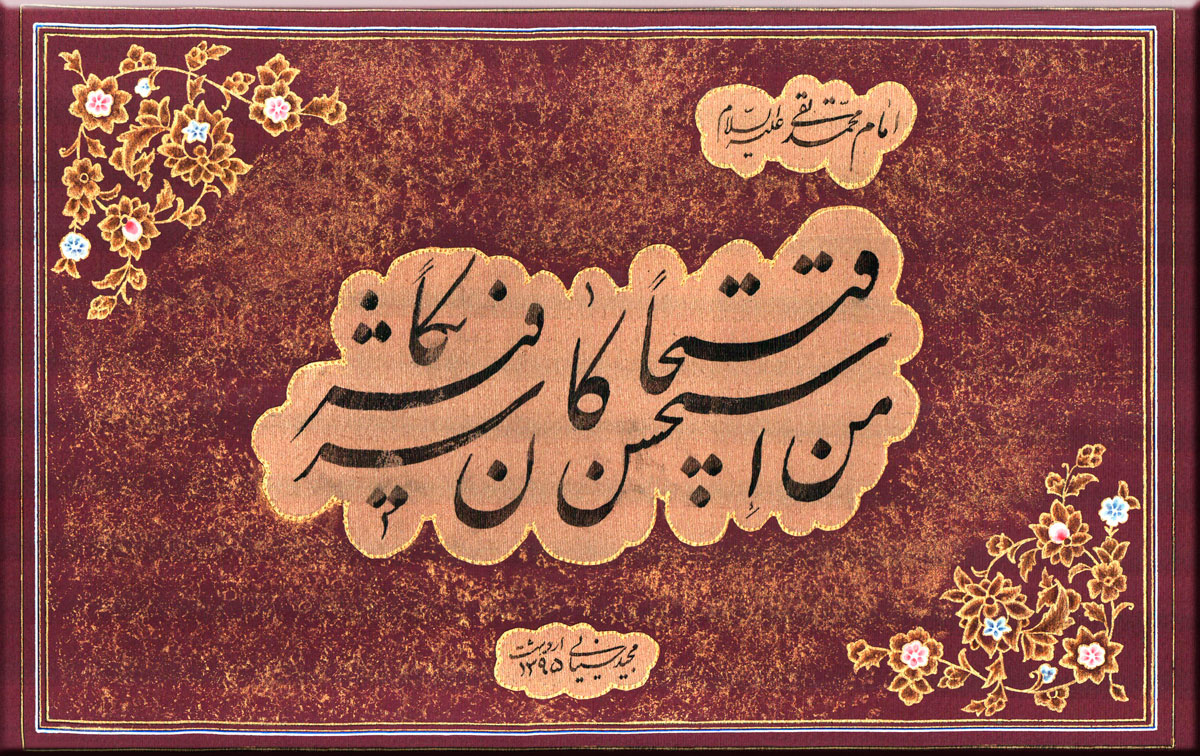 امام محمد تقی علیه السلام
من استحسن قبیحاً کان شریکاً فیه
مجید
اردیبهشت
۱۳۹۵